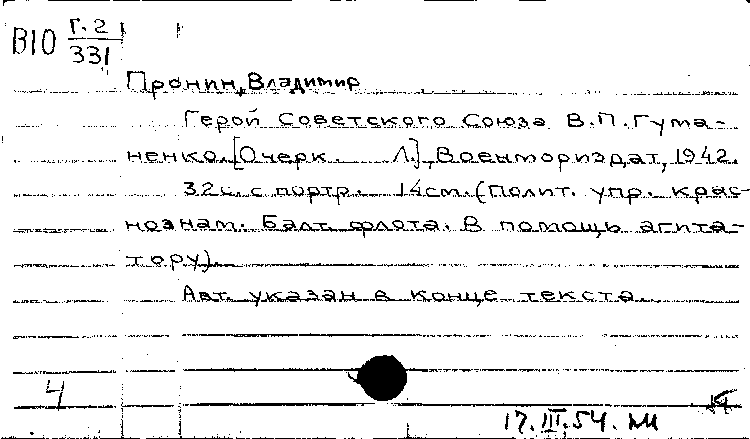 В10 Г.2
331
Пронин, Владимир
Герой Советского Союза В.П. Гума-
ненко. [Очерк. Л.], Военмориздат, 1942.
32с. с портр. 14см. (Полит. упр. крас-
нознам. Балт. флота. В помощь агита-
тору).
Авт. указан в конце текста.
4
17.III.54.